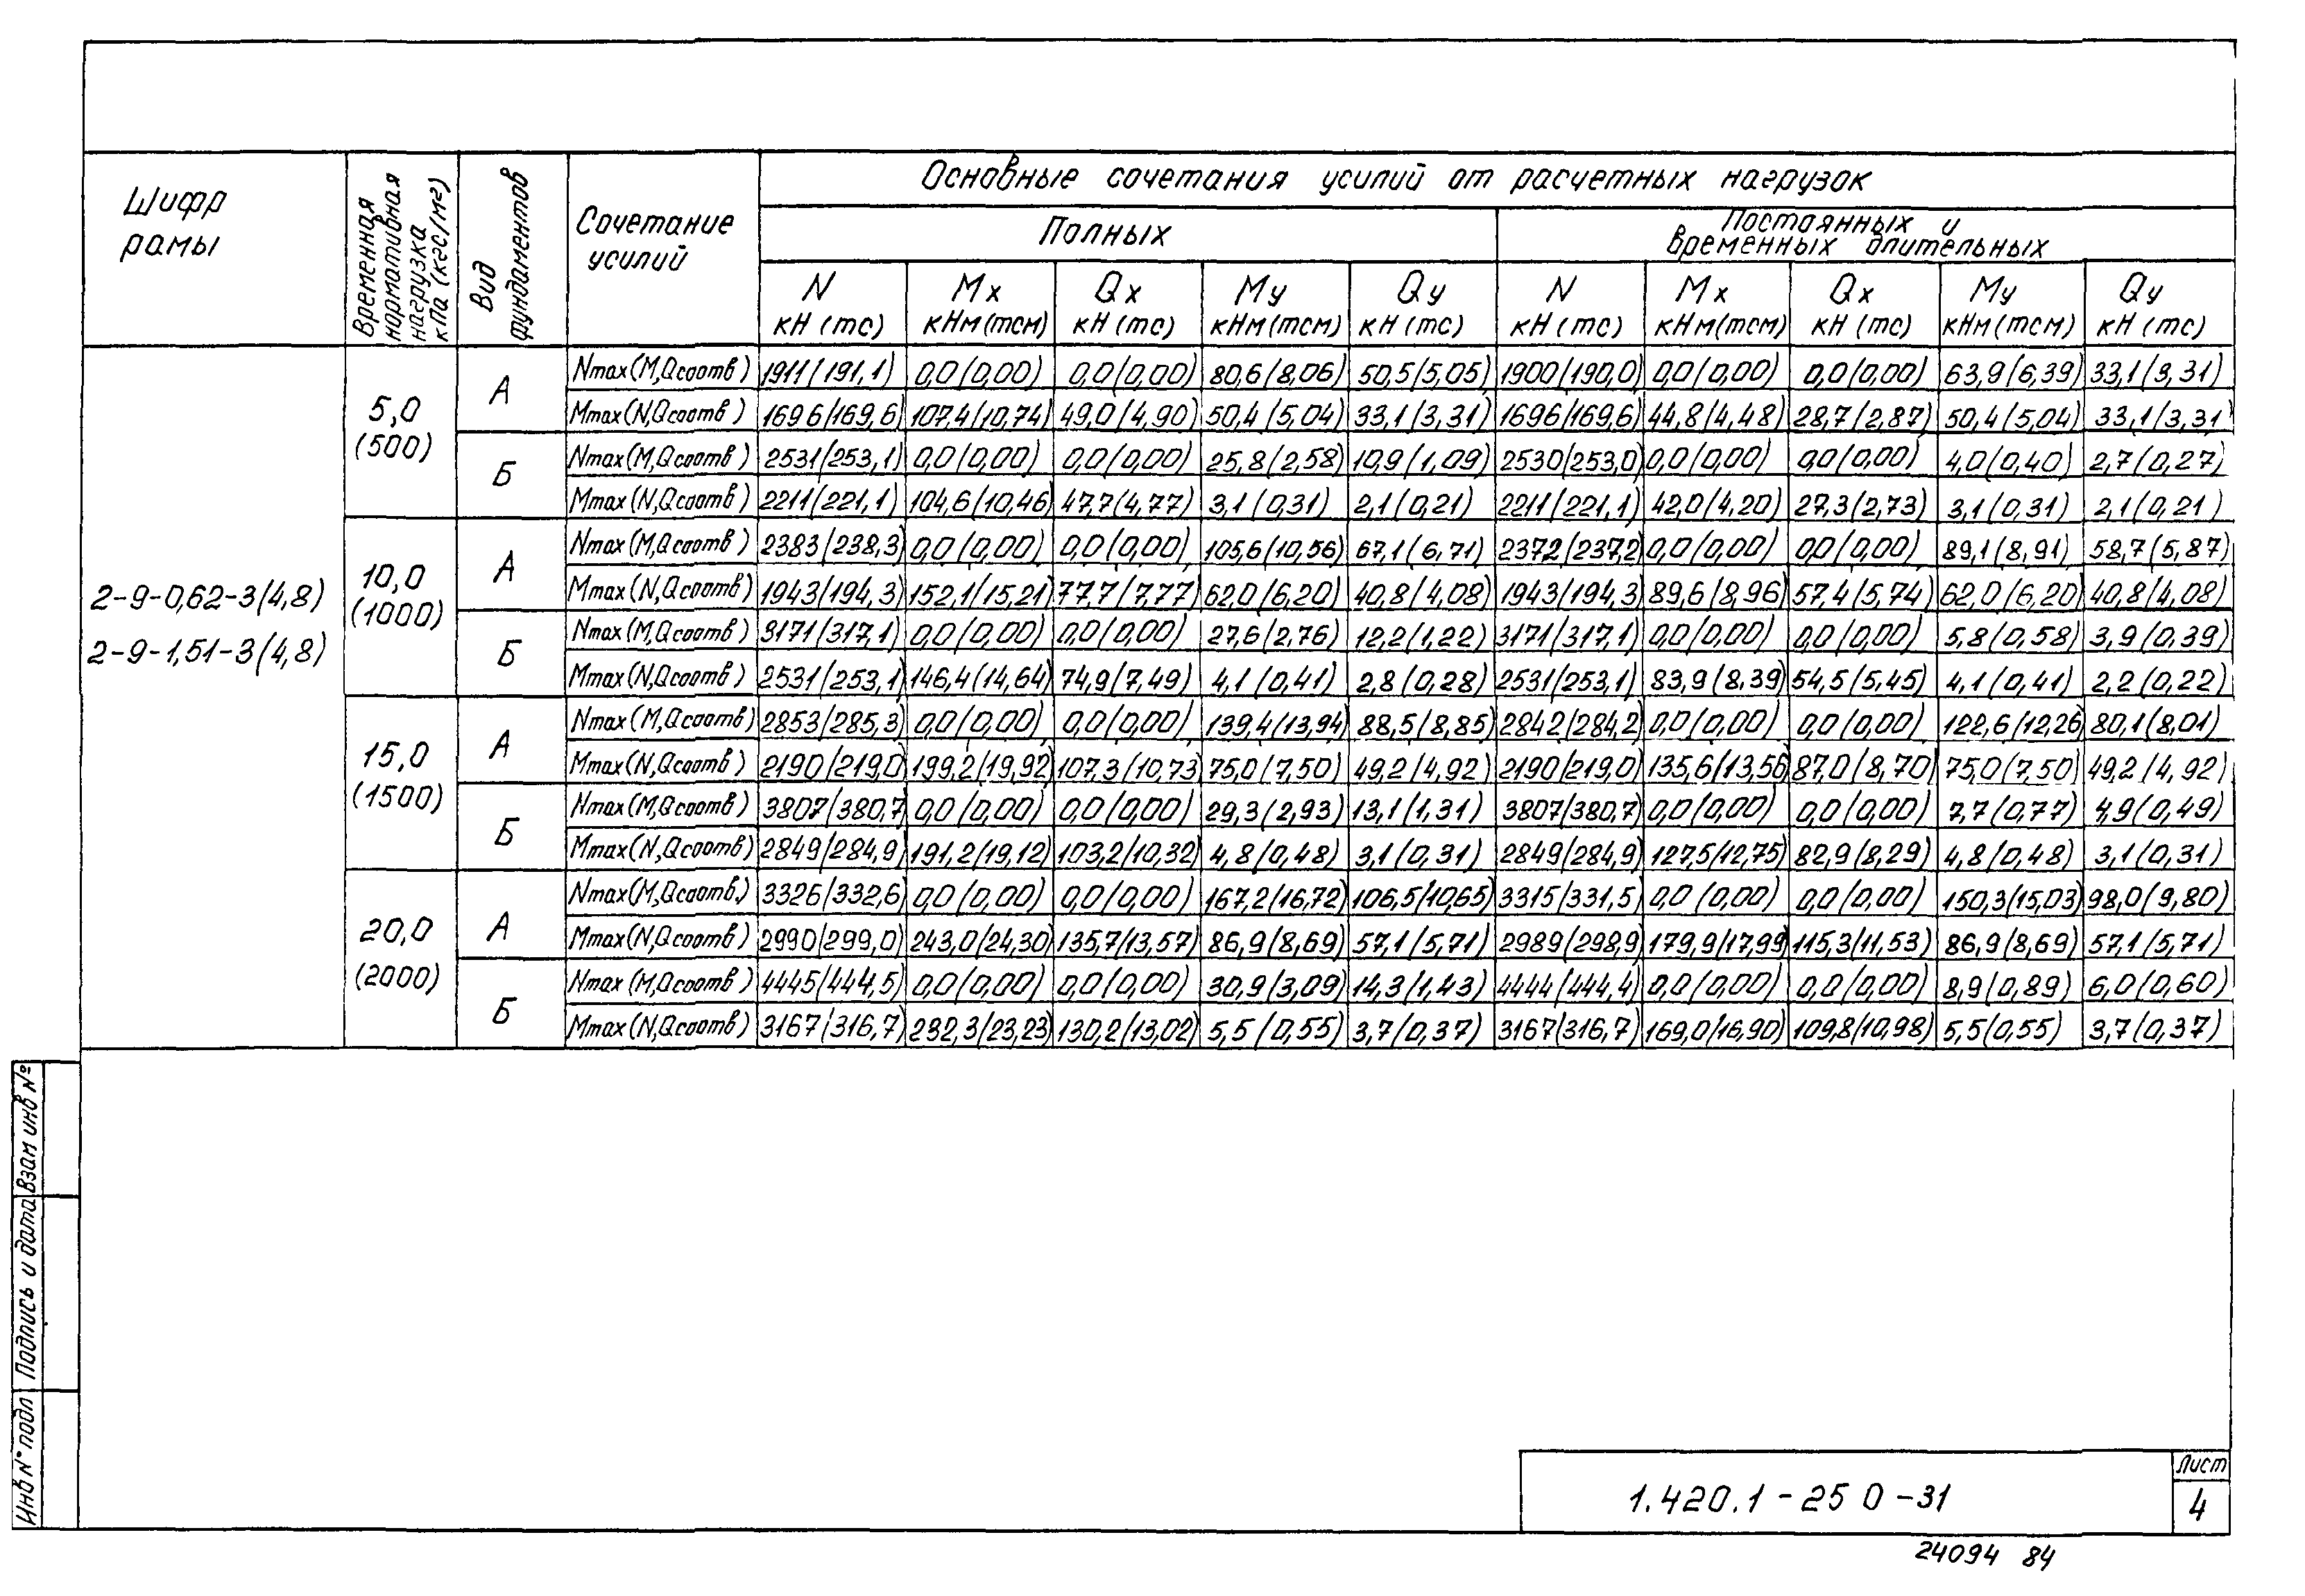 Шифр рамы
Временная нормативная нагрузка кПа (кгс/м²)
Вид фундаментов
Сочетание усилий
Основные сочетания усилий от расчетных нагрузок
Полных
Постоянных и временных длительных
N кН (тс) Mx кНм (тсм) Qx кН (тс) My кНм (тсм) Qy кН (тс) N кН (тс) Mx кНм (тсм) Qx кН (тс) My кНм (тсм) Qy кН (тс)
2-9-0,62-3(4,8)
2-9-1,51-3(4,8)
5,0 (500)
А
Nmax(M,Qсоотв) 1911(191,1) 0,0(0,00) 0,0(0,00) 80,6(8,06) 50,5(5,05) 1900(190,0) 0,0(0,00) 0,0(0,00) 63,9(6,39) 33,1(3,31)
Mmax(N,Qсоотв) 1696(169,6) 107,4(10,74) 49,0(4,90) 50,4(5,04) 33,1(3,31) 1696(169,6) 44,8(4,48) 28,7(2,87) 50,4(5,04) 33,1(3,31)
Б
Nmax(M,Qсоотв) 2531(253,1) 0,0(0,00) 0,0(0,00) 25,8(2,58) 10,9(1,09) 2530(253,0) 0,0(0,00) 0,0(0,00) 4,0(0,40) 2,7(0,27)
Mmax(N,Qсоотв) 2211(221,1) 104,6(10,46) 47,7(4,77) 3,1(0,31) 2,1(0,21) 2211(221,1) 42,0(4,20) 27,3(2,73) 3,1(0,31) 2,1(0,21)
10,0 (1000)
А
Nmax(M,Qсоотв) 2383(238,3) 0,0(0,00) 0,0(0,00) 105,6(10,56) 67,1(6,71) 2372(237,2) 0,0(0,00) 0,0(0,00) 89,1(8,91) 58,7(5,87)
Mmax(N,Qсоотв) 1943(194,3) 152,1(15,21) 77,7(7,77) 62,0(6,20) 40,8(4,08) 1943(194,3) 89,6(8,96) 57,4(5,74) 62,0(6,20) 40,8(4,08)
Б
Nmax(M,Qсоотв) 3171(317,1) 0,0(0,00) 0,0(0,00) 27,6(2,76) 12,2(1,22) 3171(317,1) 0,0(0,00) 0,0(0,00) 5,8(0,58) 3,9(0,39)
Mmax(N,Qсоотв) 2531(253,1) 146,4(14,64) 74,9(7,49) 4,1(0,41) 2,8(0,28) 2531(253,1) 83,9(8,39) 54,5(5,45) 4,1(0,41) 2,2(0,22)
15,0 (1500)
А
Nmax(M,Qсоотв) 2853(285,3) 0,0(0,00) 0,0(0,00) 139,4(13,94) 88,5(8,85) 2842(284,2) 0,0(0,00) 0,0(0,00) 122,6(12,26) 80,1(8,01)
Mmax(N,Qсоотв) 2190(219,0) 199,2(19,92) 107,3(10,73) 75,0(7,50) 49,2(4,92) 2190(219,0) 135,6(13,56) 87,0(8,70) 75,0(7,50) 49,2(4,92)
Б
Nmax(M,Qсоотв) 3807(380,7) 0,0(0,00) 0,0(0,00) 29,3(2,93) 13,1(1,31) 3807(380,7) 0,0(0,00) 0,0(0,00) 7,7(0,77) 4,9(0,49)
Mmax(N,Qсоотв) 2849(284,9) 191,2(19,12) 103,2(10,32) 4,8(0,48) 3,1(0,31) 2849(284,9) 127,5(12,75) 82,9(8,29) 4,8(0,48) 3,1(0,31)
20,0 (2000)
А
Nmax(M,Qсоотв) 3326(332,6) 0,0(0,00) 0,0(0,00) 167,2(16,72) 106,5(10,65) 3315(331,5) 0,0(0,00) 0,0(0,00) 150,3(15,03) 98,0(9,80)
Mmax(N,Qсоотв) 2990(299,0) 243,0(24,30) 135,7(13,57) 86,9(8,69) 57,1(5,71) 2989(298,9) 179,9(17,99) 115,3(11,53) 86,9(8,69) 57,1(5,71)
Б
Nmax(M,Qсоотв) 4445(444,5) 0,0(0,00) 0,0(0,00) 30,9(3,09) 14,3(1,43) 4444(444,4) 0,0(0,00) 0,0(0,00) 8,9(0,89) 6,0(0,60)
Mmax(N,Qсоотв) 3167(316,7) 232,3(23,23) 130,2(13,02) 5,5(0,55) 3,7(0,37) 3167(316,7) 169,0(16,90) 109,8(10,98) 5,5(0,55) 3,7(0,37)
Инв № подл Подпись и дата Взам инв №
1.420.1-25 0-31
Лист
4
24094 84